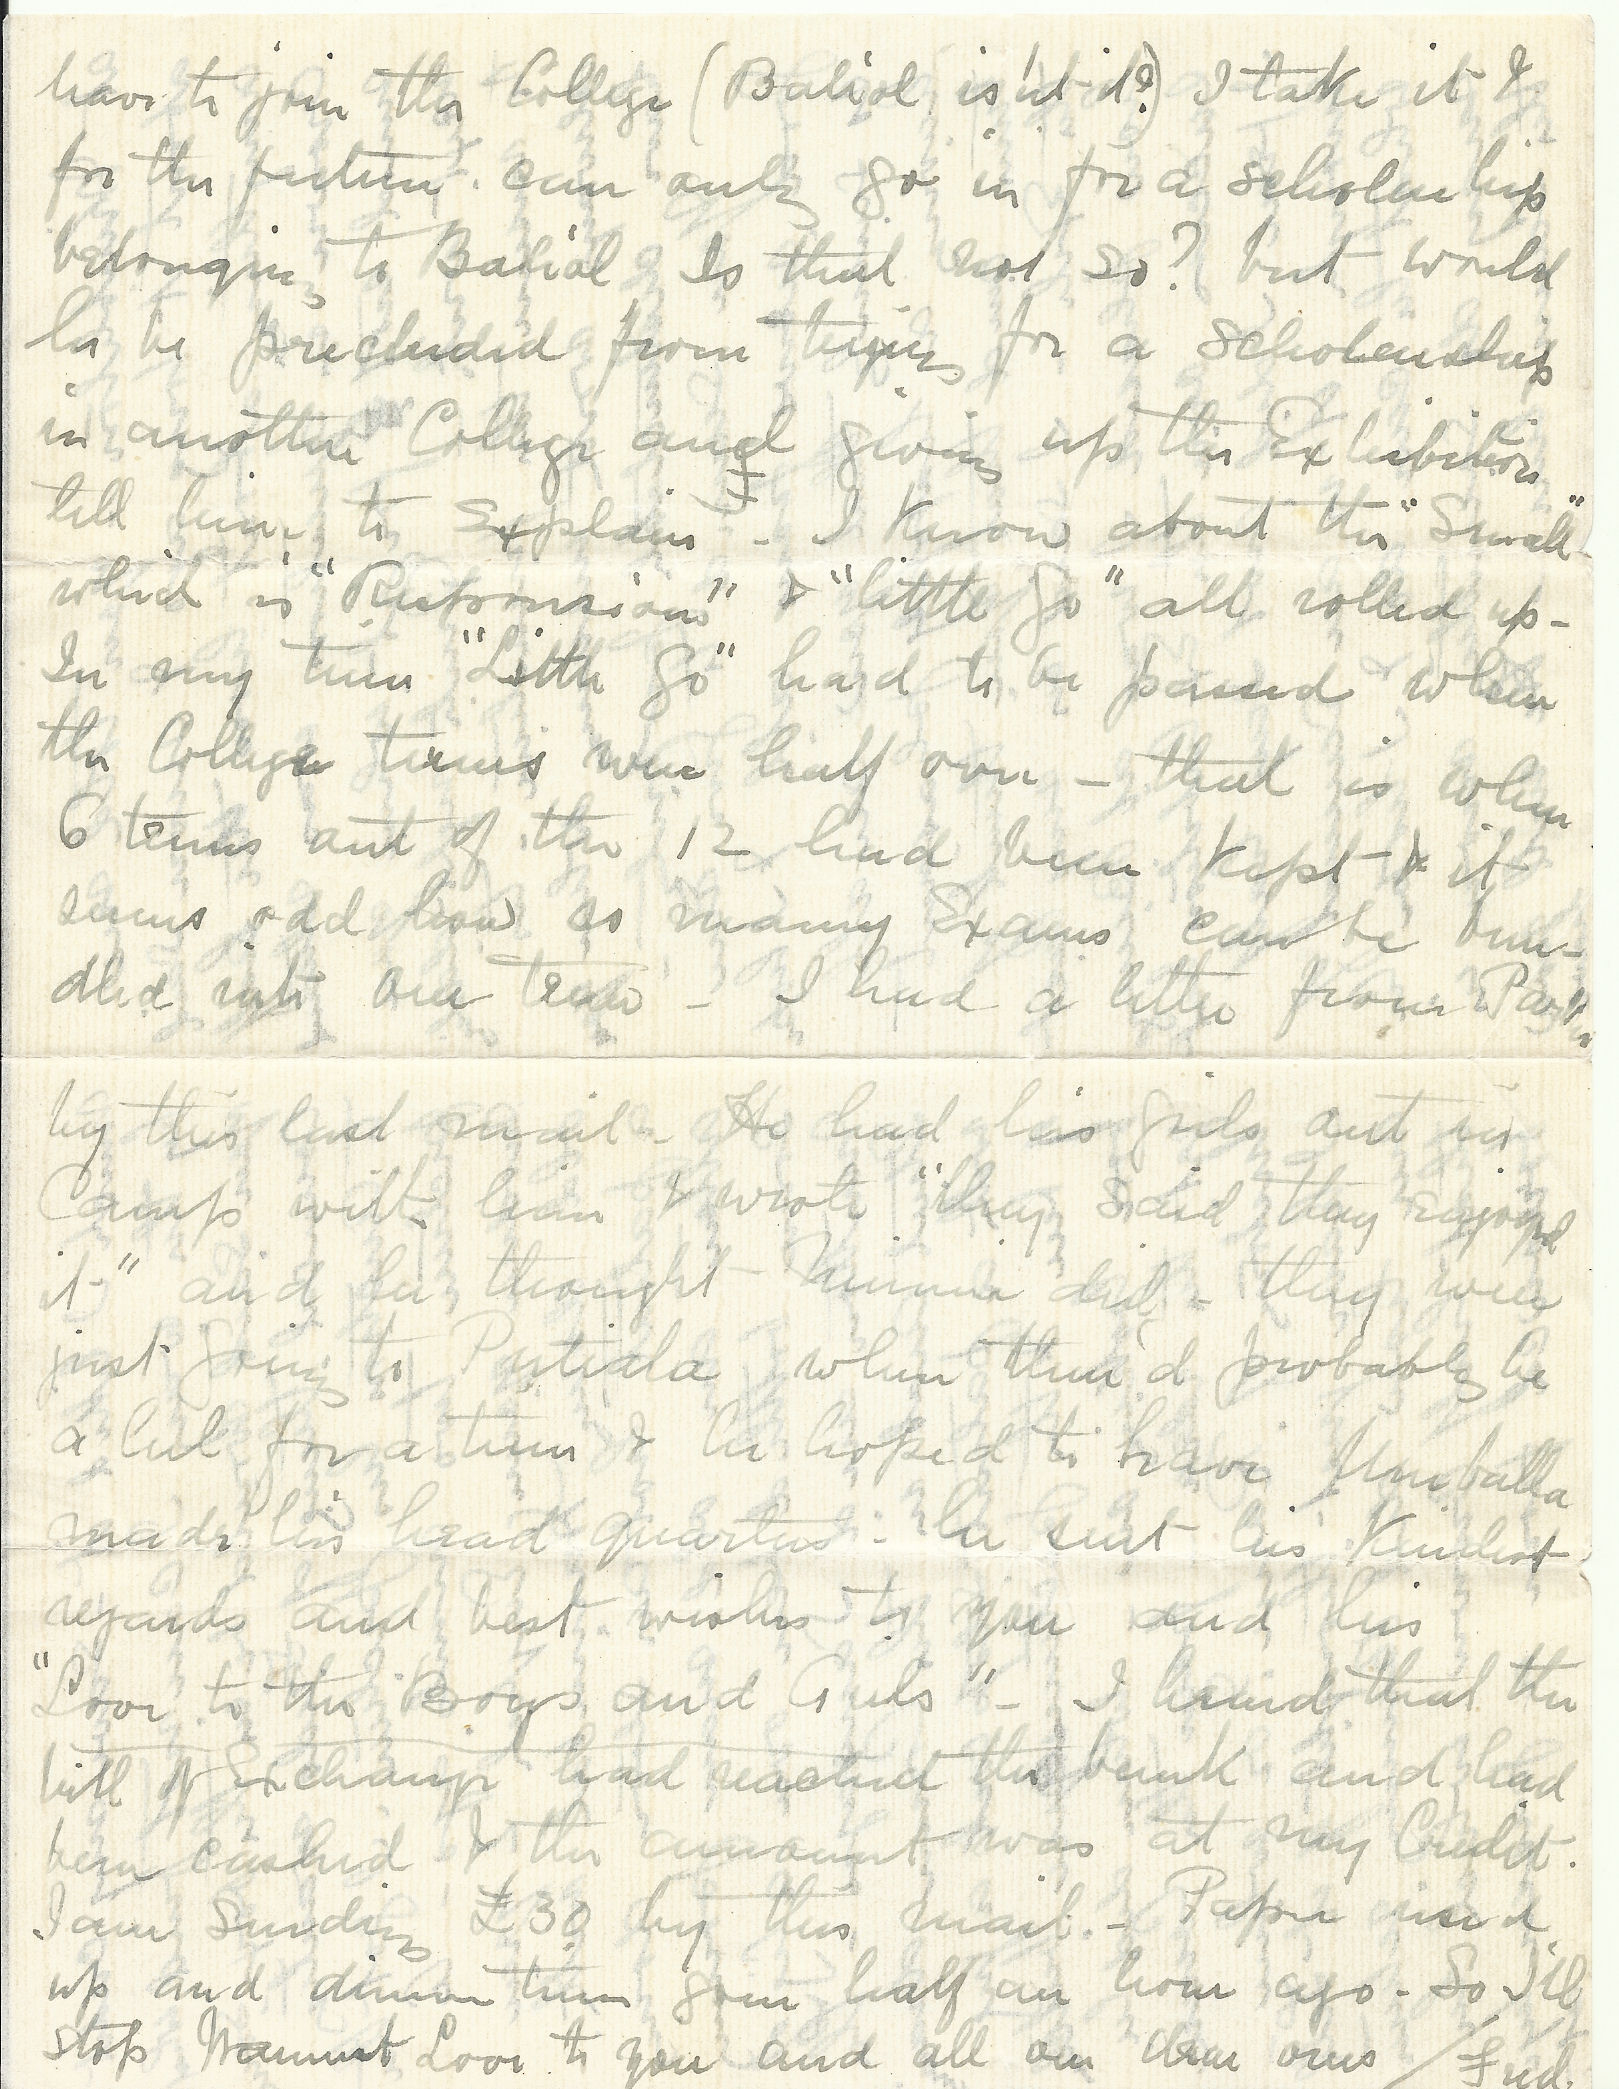 have to join the College (Baliol is'nt it?) I take it &
for the future can only go in for a scholarship
belonging to Baliol Is that not so? but would
he be precluded from trying for a scholarship
in another College and giving up this Exhibition
tell him to explain - I know about the "Small"
which is "Responsions" & "little go" all rolled up -
In my time "Little Go" had to be passed when
the College terms were half over - that is when
6 terms out of the 12 had been kept & it
seems odd how so many Exams can be bun-
dled into one term - I had a letter from
by this last mail - He had his girls out in
Camp with him & wrote "they said they enjoyed
it" and he thought Minnie did - they were
just going to Putiala when there'd probably be
a lul for a time & he hoped to have Umballa
made his head quarters - he sent his Kindest
regards and best wishes to you and his
"Love to the Boys and Girls" - I heard that the
bill of Exchange had reached the bank and had
been cashed & the amount was at my Credit.
I am sending £30 by this mail. - Paper used
up and dinner time gone half an hour ago - So I'll
stop Love to you and all our dear ones / Fred.